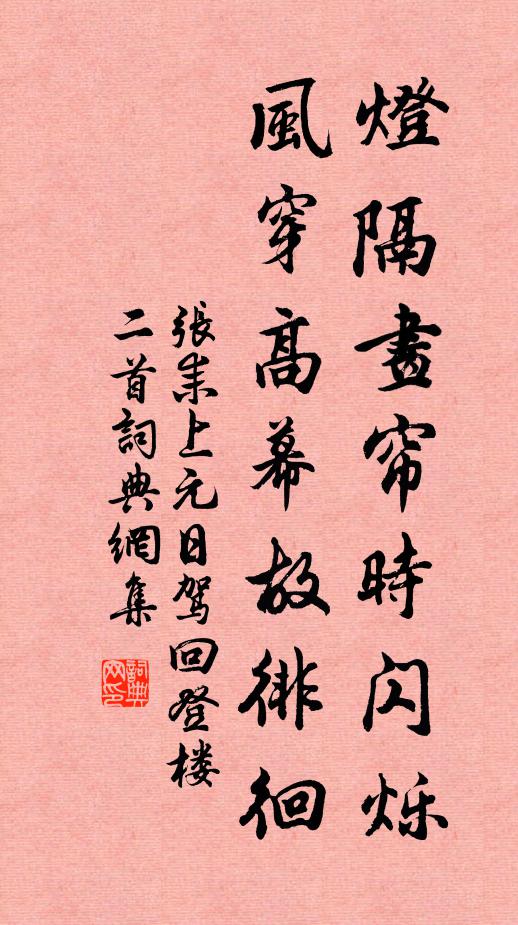 燈隔畫帘時闪烁
風穿高幕故徘徊
張耒上元日駕回登楼
二首詞典網集
詞典网印